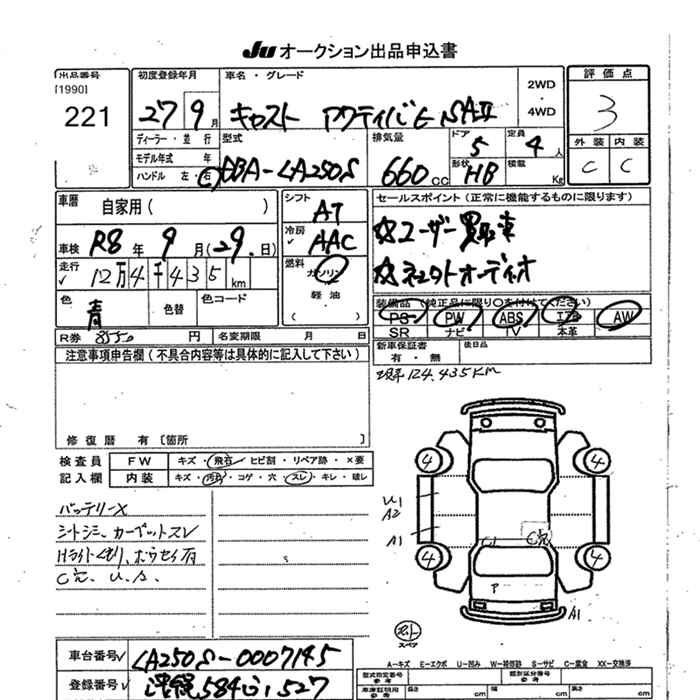 Ju オークション出品申込書
出品番号
[1990]
221
初度登録年月
27年9月
車名・グレード
キャスト アクティバG SAⅡ
2WD
・
4WD
評価点
3
外装 内装
C C
ディーラー・並行
モデル年式 年
ハンドル 左・右
型式
DBA-LA250S
排気量
660cc
ドア
5
形状
HB
定員
4人
積載
Kg
車歴
自家用( )
車検 R8年9月(29日)
走行 12万4千435km
色 青
色替
色コード
シフト
AT
冷房
AAC
燃料
ガソリン
軽油
( )
セールスポイント(正常に機能するものに限ります)
☆ユーザー買取車
☆ネオトオーディオ
装備品(純正品に限り○を付けてください)
PS PW ABS エアB AW
SR ナビ TV 本革
R券 8550円
名変期限 月 日
新車保証書
有・無
後日品
注意事項申告欄(不具合内容等は具体的に記入して下さい)
現車124,435KM
修復歴 有[箇所 ]
検査員
記入欄
FW キズ・飛石・ヒビ割・リペア跡・×要
内装 キズ・汚れ・コゲ・穴・スレ・キレ・破レ
バッテリーX
シートシミ、カーペットスレ
Hライトくもり、ホウセイ有
C完、U.A.
4 4
U1
A2
A1
C1 C完
4 4
ア
A1
スペア
A-キズ E-エクボ U-凹み W-補修跡 S-サビ C-腐食 XX-交換済
車台番号 LA250S-0007145
登録番号 沖縄584い1527
型式指定番号
参考
類別区分番号
参考
車庫証明用
長さ cm
幅 cm
高さ cm